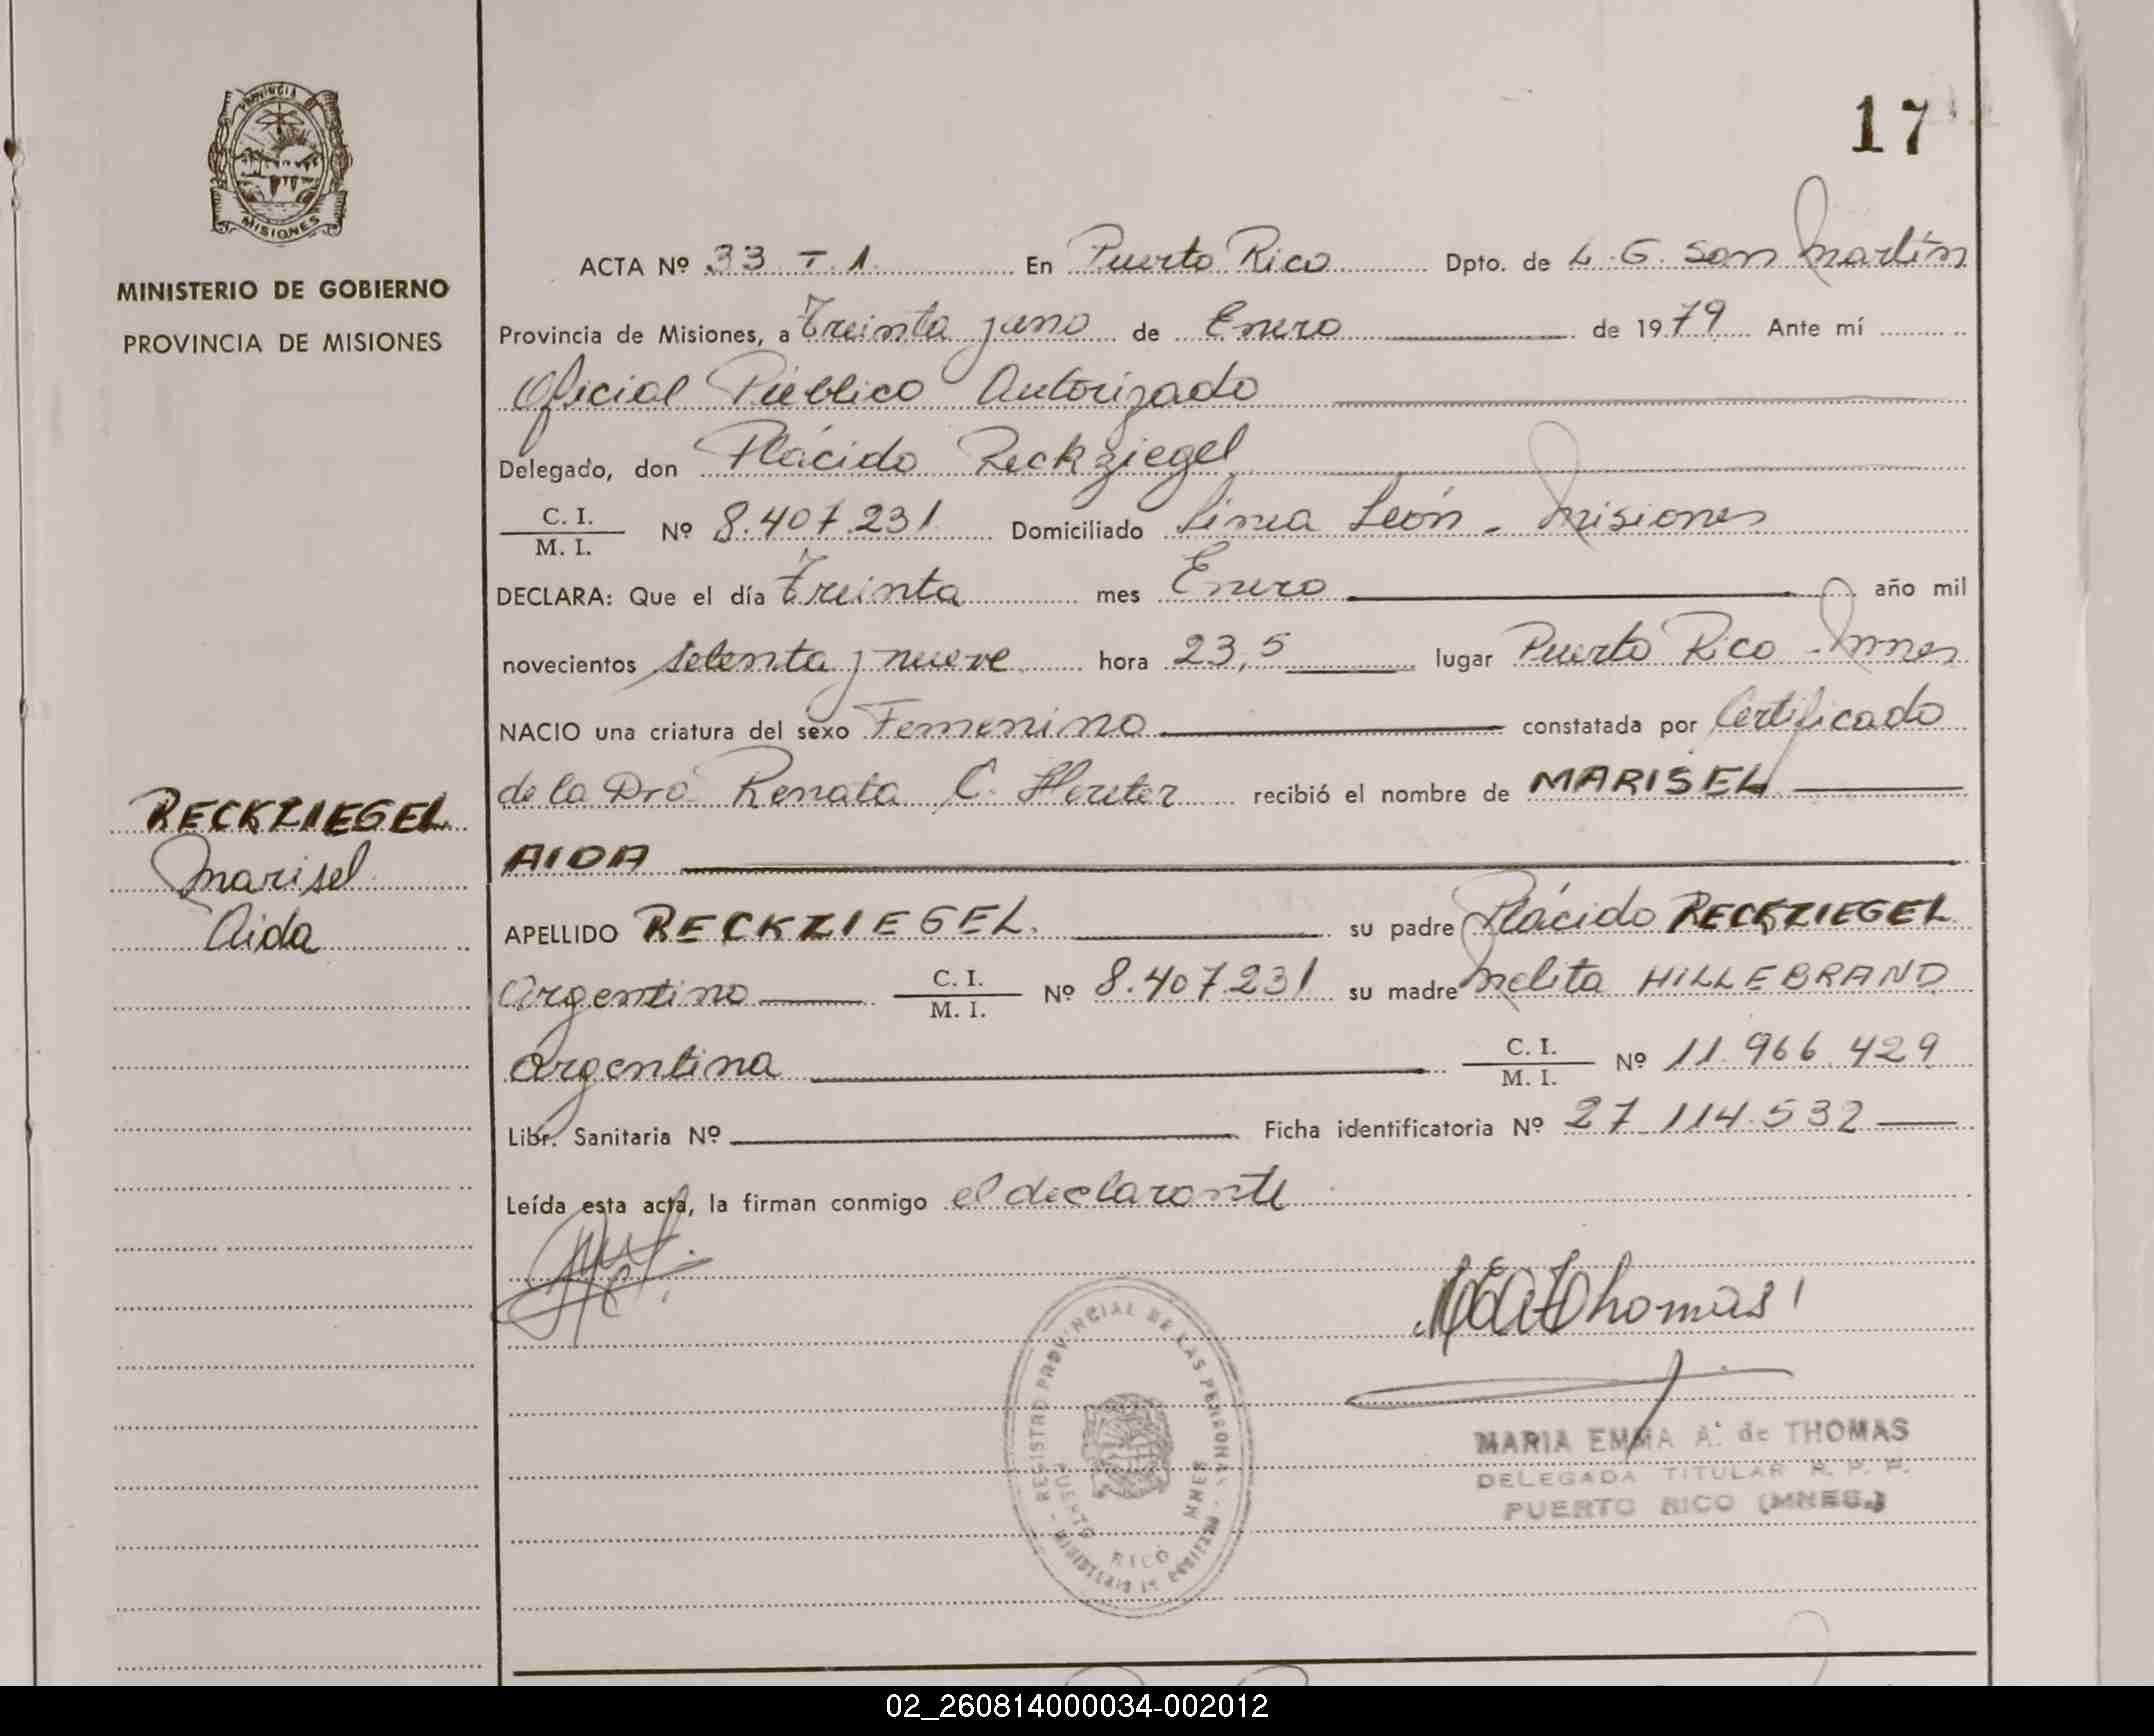 17
PROVINCIA
MISIONES
MINISTERIO DE GOBIERNO
PROVINCIA DE MISIONES
RECKZIEGEL
Marisel
Aida
ACTA Nº 33 - T - 1. En Puerto Rico Dpto. de L. G. San Martín
Provincia de Misiones, a Treinta y uno de Enero de 1979 Ante mí
Oficial Público Autorizado
Delegado, don Plácido Reckziegel
C. I.
M. I. Nº 8.407.231 Domiciliado Línea León - Misiones
DECLARA: Que el día Treinta mes Enero año mil
novecientos setenta y nueve hora 23,5 lugar Puerto Rico - Mnes
NACIO una criatura del sexo Femenino constatada por Certificado
de la Dra. Renata C. recibió el nombre de MARISEL
AIDA
APELLIDO RECKZIEGEL. su padre Plácido RECKZIEGEL
Argentino C. I.
M. I. Nº 8.407.231 su madre Melita HILLEBRAND
Argentina C. I.
M. I. Nº 11.966.429
Libr. Sanitaria Nº Ficha identificatoria Nº 27.114.532
Leída esta acta, la firman conmigo el declarante
Thomas
REGISTRO PROVINCIAL DE LAS PERSONAS
PUERTO RICO MNES
MARIA EMMA A. de THOMAS
DELEGADA TITULAR R. P. P.
PUERTO RICO (MNES.)
02_260814000034-002012